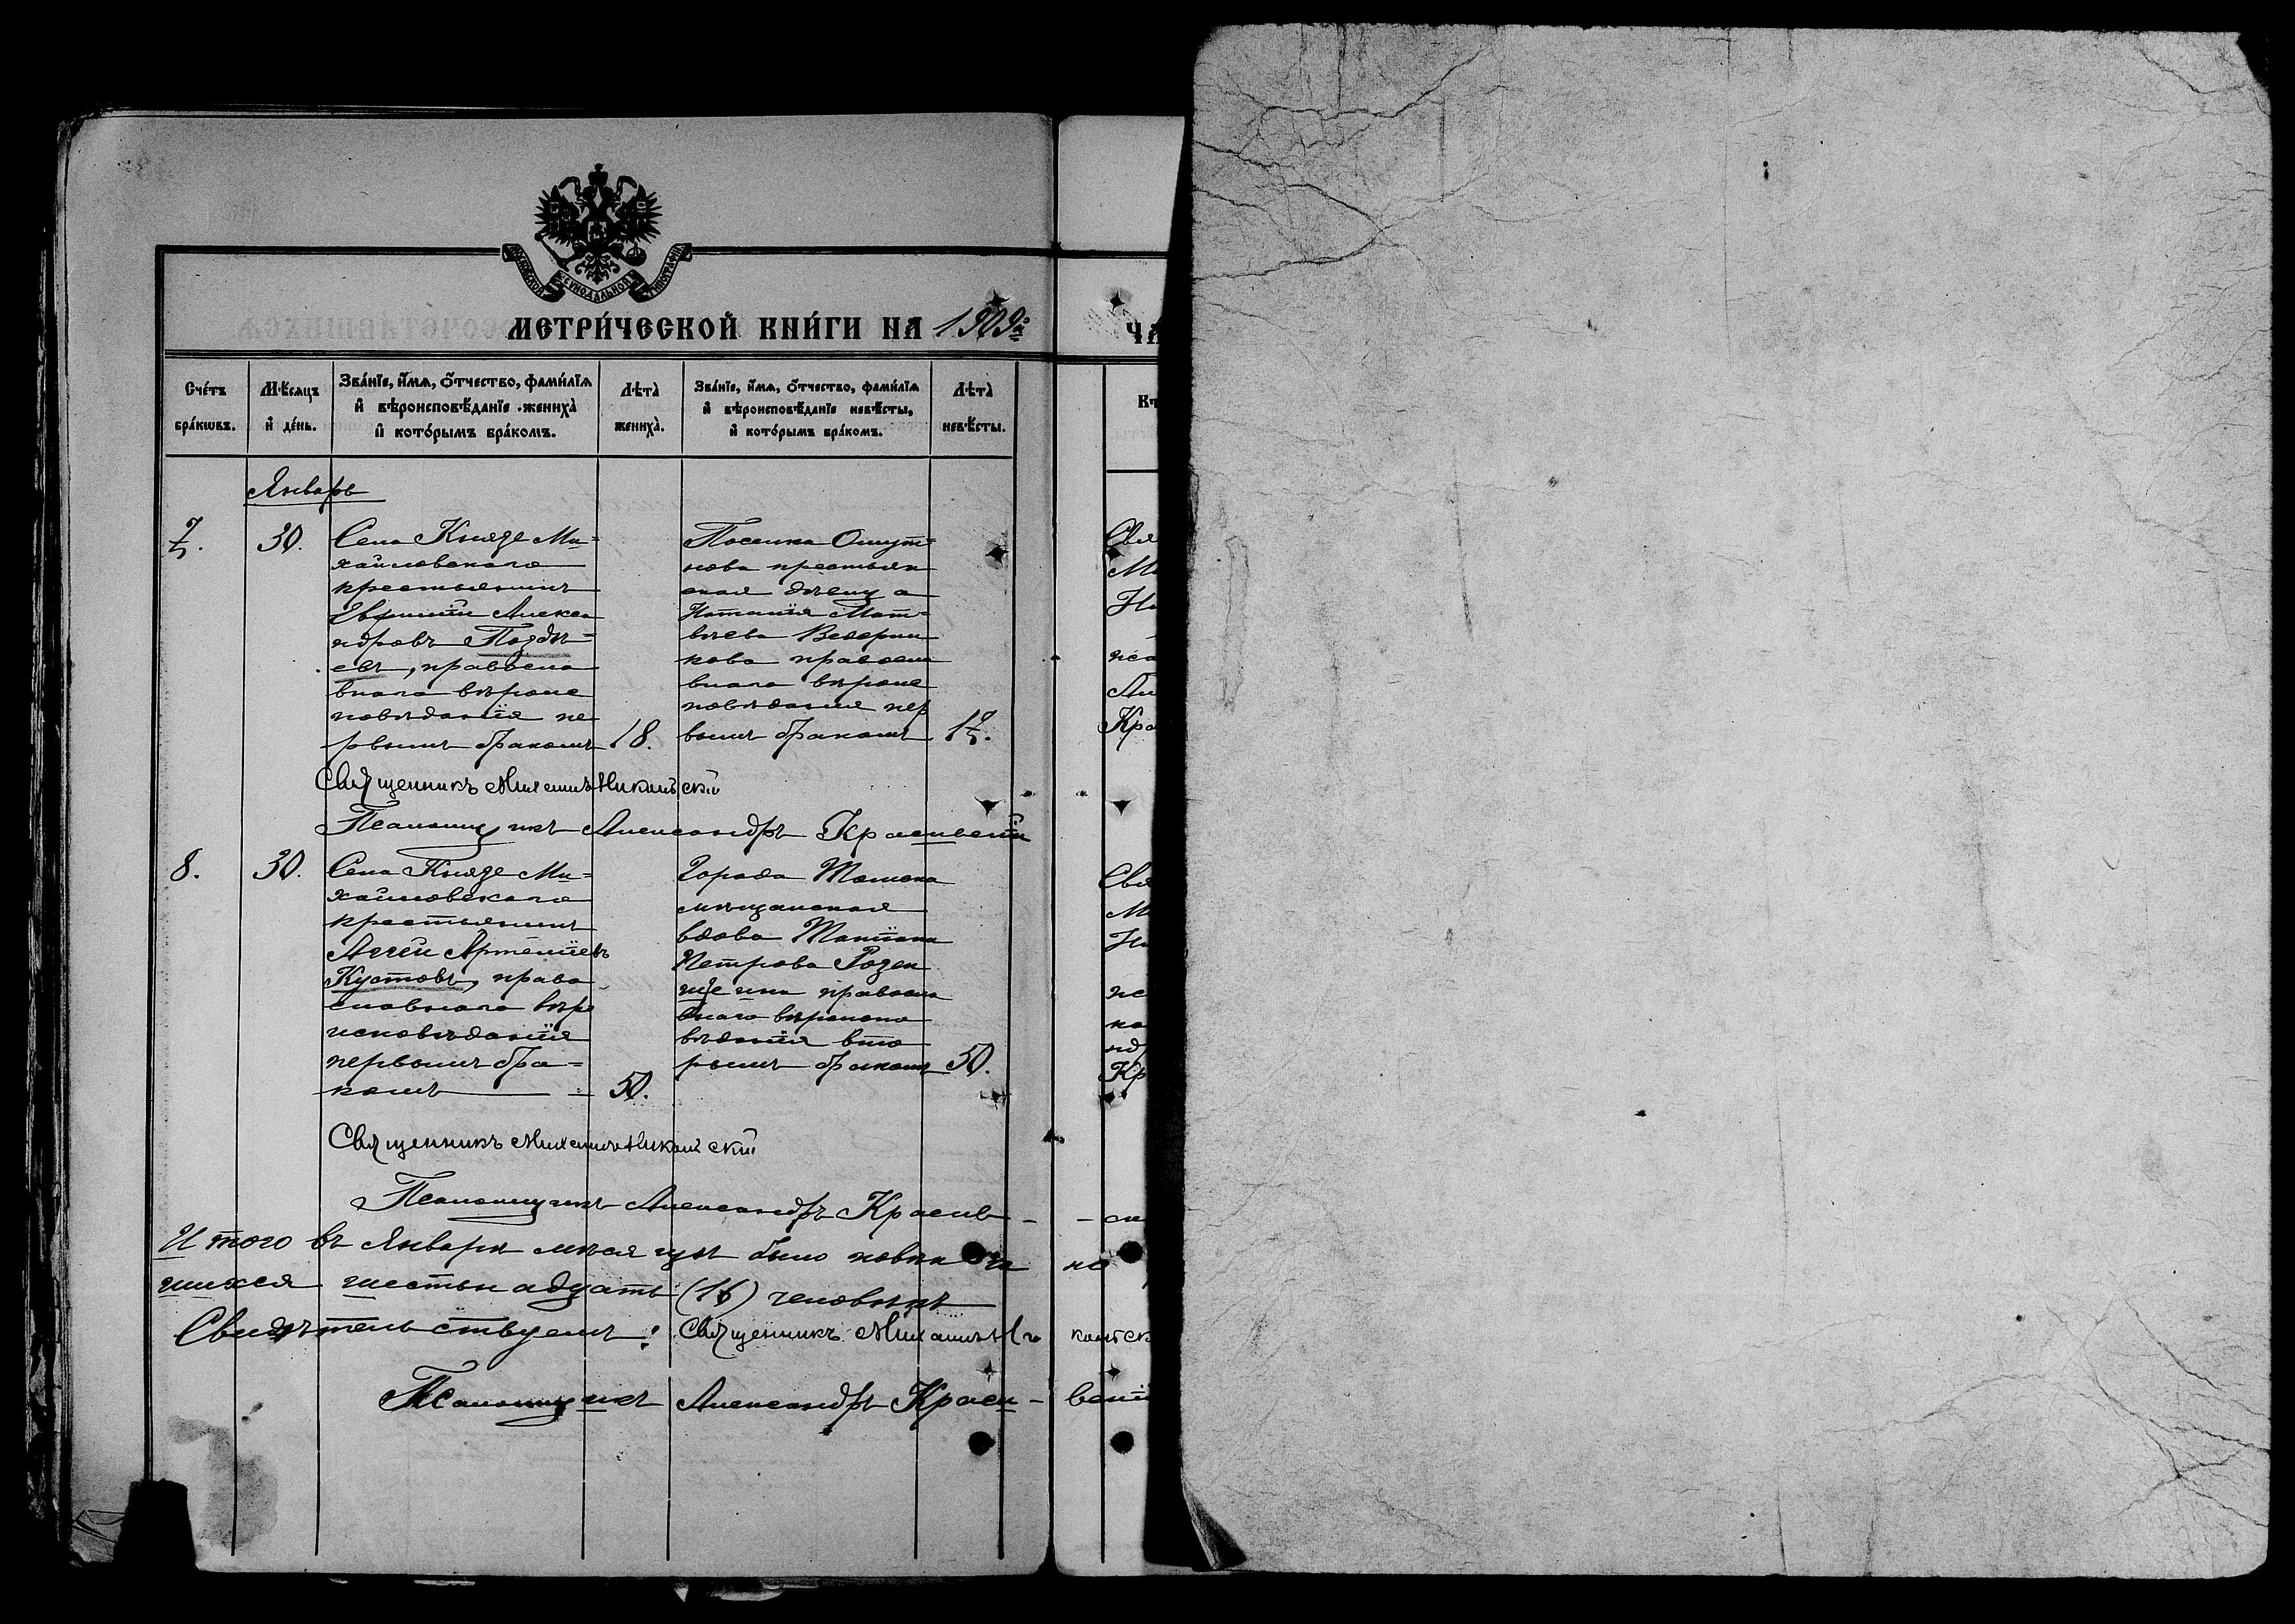 МОСКОВСКОЙ СѴНОДАЛЬНОЙ ТИПОГРАФІИ
МЕТРИ́ЧЕСКОЙ КНИ́ГИ НА 1909й
ЧА
Сче́тъ бра́кѡвъ.
Мѣ́сяцъ и҆ де́нь.
Зва́нїе, и҆́мѧ, ѻ҆́тчество, фами́лїѧ
и҆ вѣроисповѣ́данїе жениха̀
и҆ кото́рымъ бра́комъ.
Лѣта̀ жениха̀.
Зва́нїе, и҆́мѧ, ѻ҆́тчество, фами́лїѧ
и҆ вѣроисповѣ́данїе невѣ́сты,
и҆ кото́рымъ бра́комъ.
Лѣта̀ невѣ́сты.
Январь
7.
30.
Села Князе Ми=
хайловскаго
крестьянинъ
Евфимій Алекса
ндровъ Поздѣ=
евъ, правосла
внаго вѣроис
повѣданія пе
рвымъ бракомъ
18.
Поселка Омут=
нова крестьян
ская дѣвица
Наталія Мат=
вѣева
правосла
внаго вѣроис
повѣданія пер
вымъ бракомъ
17.
Свя
Ми
Ни
пса
Ал
Кра
Священникъ Михаилъ Никольскій
Псаломщикъ Александръ Красивскій
8.
30.
Села Князе Ми=
хайловскаго
крестьянинъ
Аггей Артеміевъ
Кустовъ, право
славнаго вѣро
исповѣданія
первымъ бра=
комъ
50.
Города Томска
мѣщанская
вдова Татіана
Петрова
правосла
внаго вѣроиспо
вѣданія вто
рымъ бракомъ
50.
Свя
Ми
Ни
пс
ло
нд
Кр
Священникъ Михаилъ Никольскій
Псаломщикъ Александръ Красив-
- ск
Итого въ Январѣ мѣсяцѣ было повѣнча
шихся шестьнадцать (16) человѣкъ
Свидѣтельствуемъ: Священникъ Михаилъ Ни кольск
Псаломщикъ Александръ Краси- вскій